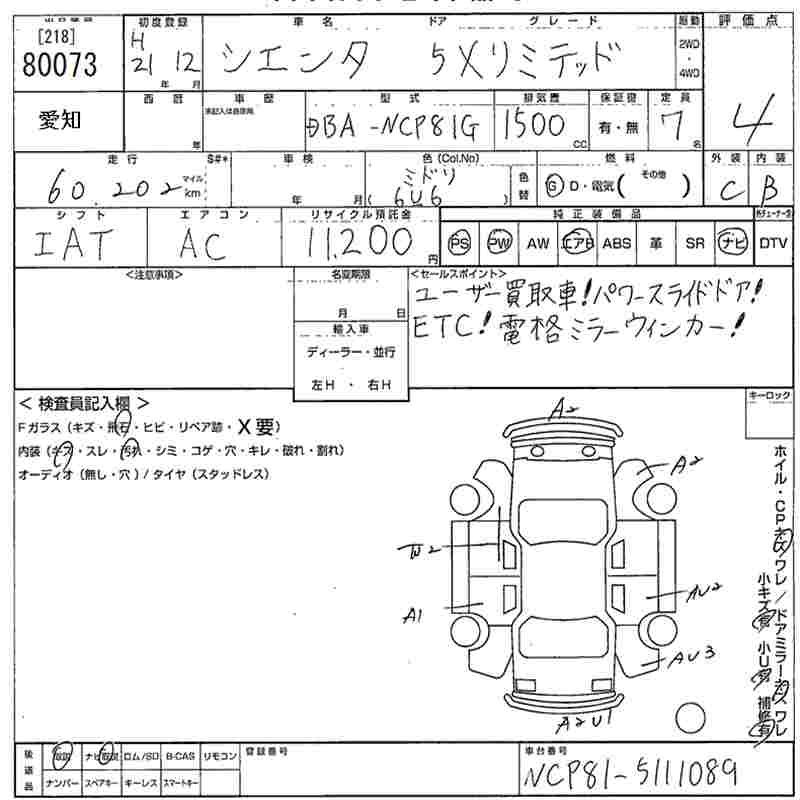 初度登録 車名 ドア グレード 駆動 評価点
[218]
80073
H
21 12
年 月
シエンタ 5 Xリミテッド
2WD
・
4WD
愛知
西暦 車歴 型式 排気量 保証書 定員
年
DBA -NCP81G 1500 CC 有・無 7 名
4
走行 S#* 車検 色 (Col.No) 燃料 外装 内装
60,202 マイル km
年 月
ミドリ
( 6U6 )
色替
G D・電気 ( その他 )
C B
シフト エアコン リサイクル預託金 純正装備品
IAT AC 11,200 円
PS PW AW エアB ABS 革 SR ナビ DTV
<注意事項> 名変期限 <セールスポイント>
月 日
ユーザー買取車!パワースライドドア!
ETC!電格ミラーウィンカー!
輸入車
ディーラー・並行
左H ・ 右H
< 検査員記入欄 >
Fガラス (キズ・飛石・ヒビ・リペア跡・X要)
内装 (キズ・スレ・汚れ・シミ・コゲ・穴・キレ・破れ・割れ)
オーディオ (無し・穴) / タイヤ (スタッドレス)
キーロック
A2
A2
W2
AU2
A1
AU3
A2U1
ホイル・CPキズワレ/ドアミラーキズワレ
小キズ有 小U有 補修有
後送品
取説 ナビ取説 ロム/SD B-CAS リモコン
ナンバー スペアキー キーレス スマートキー
登録番号
車台番号
NCP81-5111089